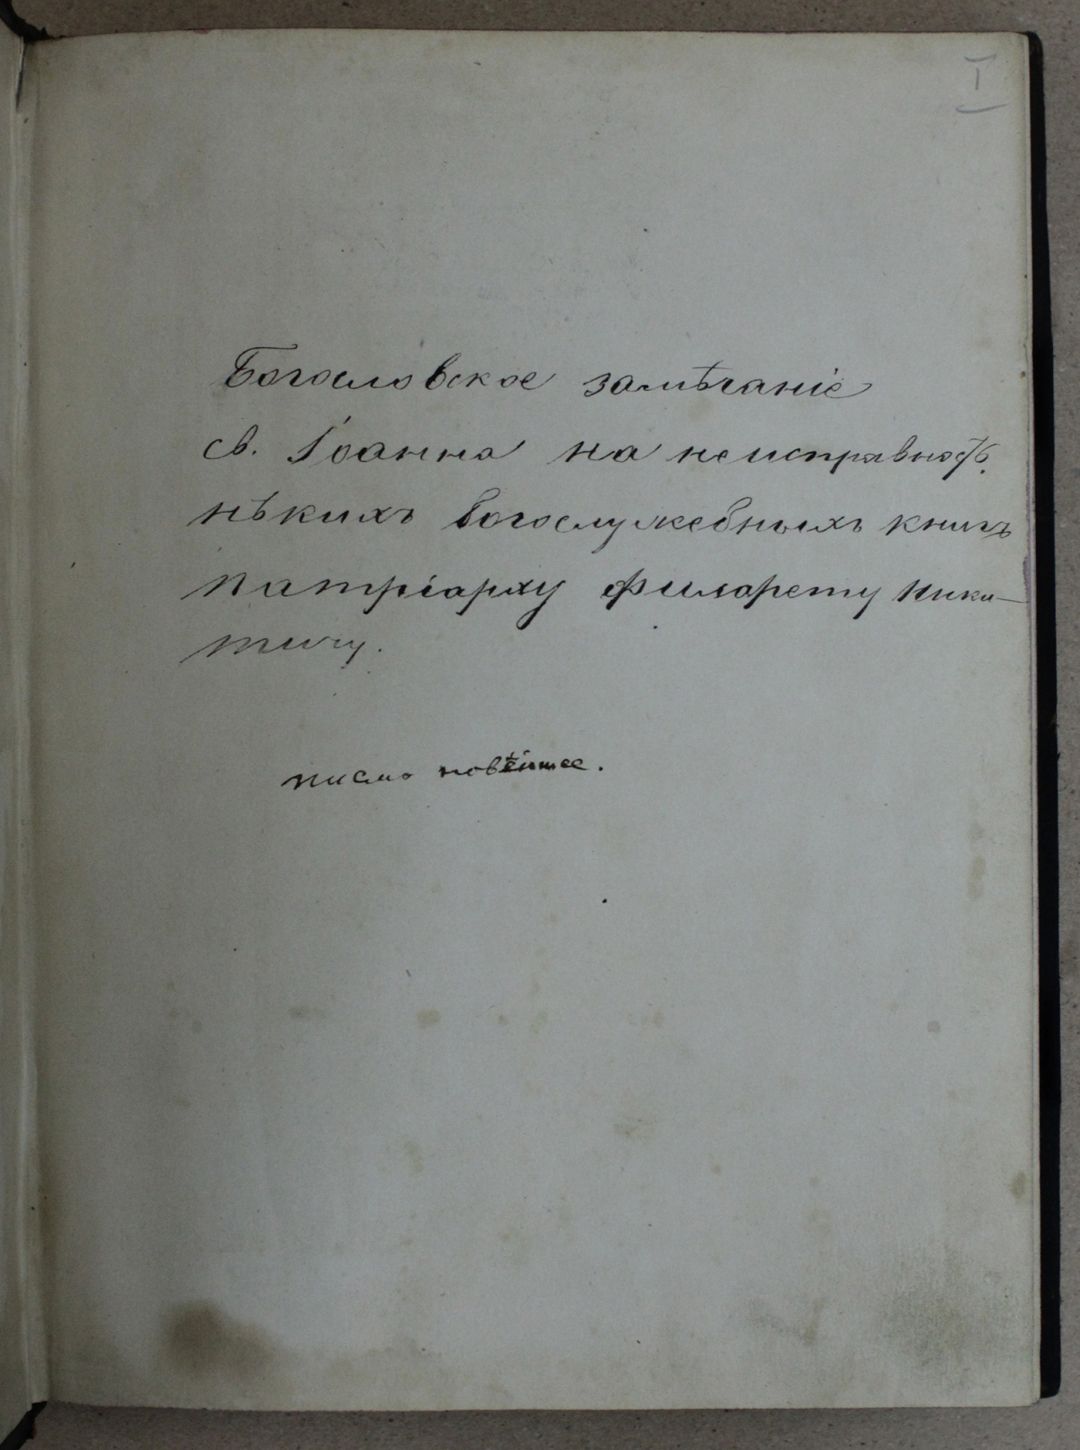 I
Богословское замѣчаніе
св. Іоанна на неисправность
нѣкихъ богослужебныхъ книгъ
патріарху Филарету Ники-
тичу.
писмо новѣйшее.